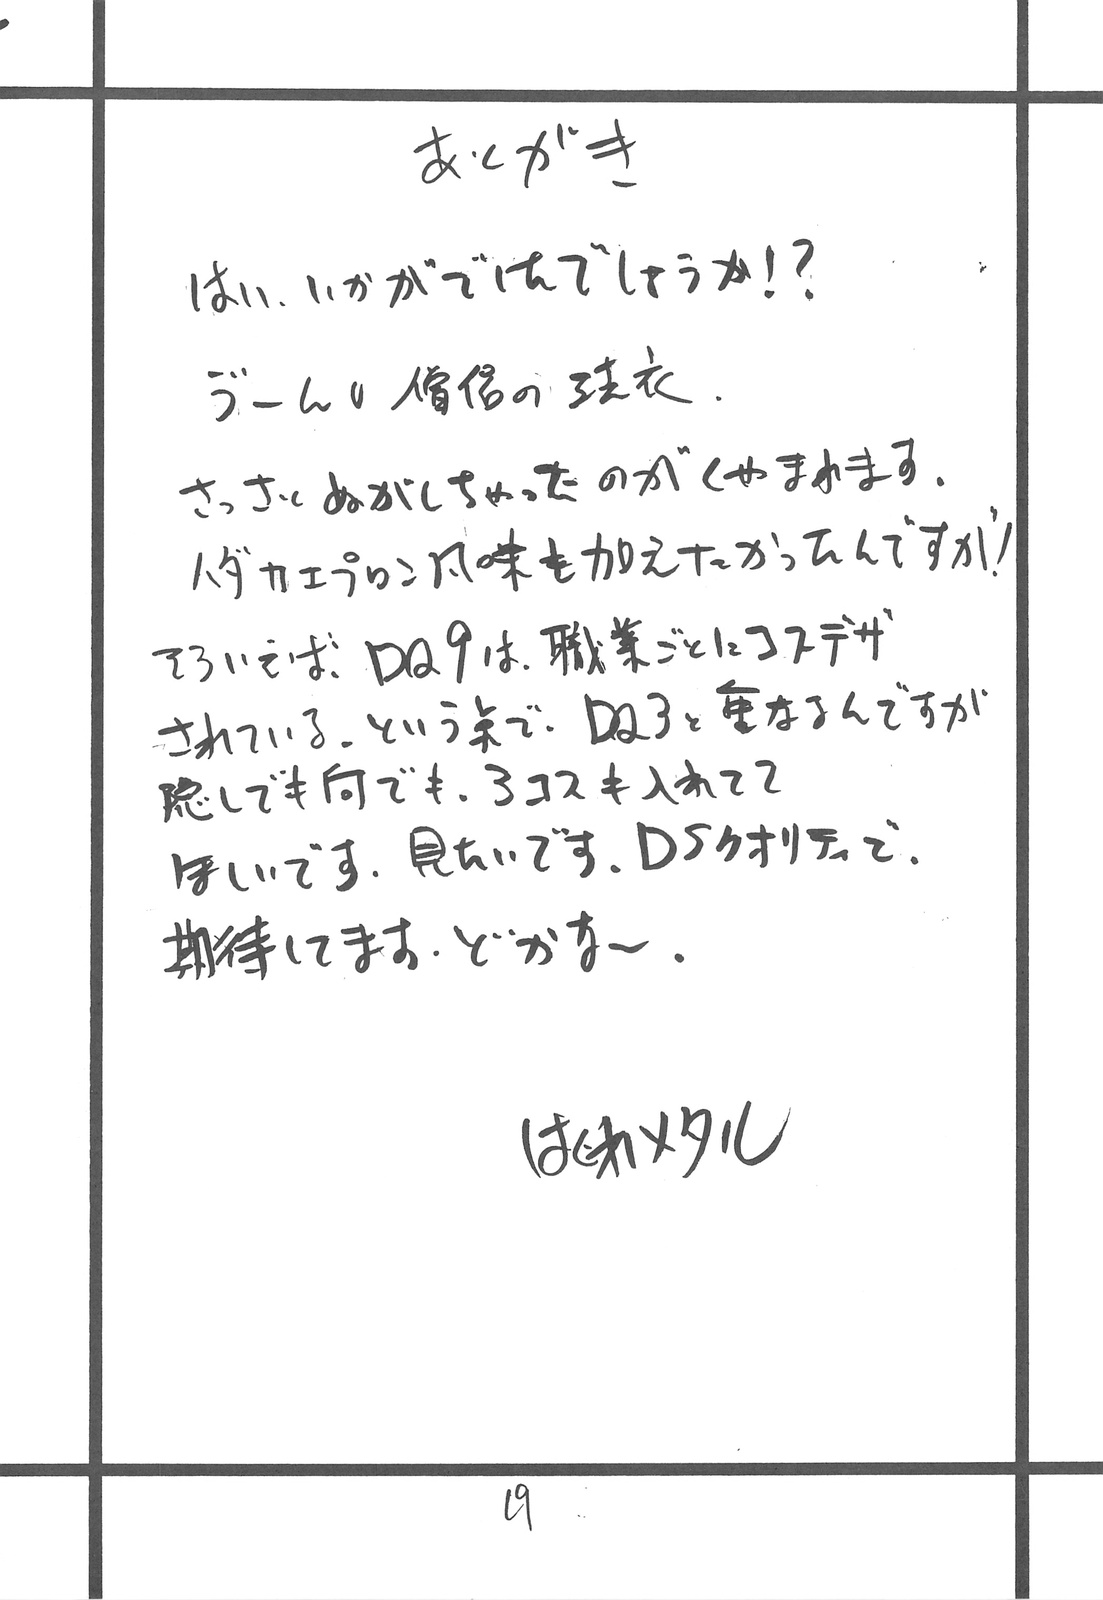 あとがき
はい、いかがでしたでしょうか!?
うーん 僧侶の 法衣.
さっさと ぬがしちゃったのが くやまれます.
ハダカエプロン風味も加えたかったんですが!
そういえば、DQ9は、職業ごとにコスデザ
されている.という点で、DQ3と重なるんですが
隠しでも何でも.3コスも入れてて
ほしいです.見たいです.DSクオリティで.
期待してます.どかな〜.
はぐれメタル
19